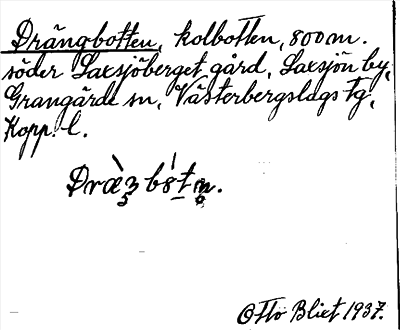 Drängbotten, kolbotten, 800 m.
söder Laxsjöberget gård, Laxsjön by,
Grangärde sn, Västerbergslags tg,
Kopp. l.
Otto Blixt 1937.